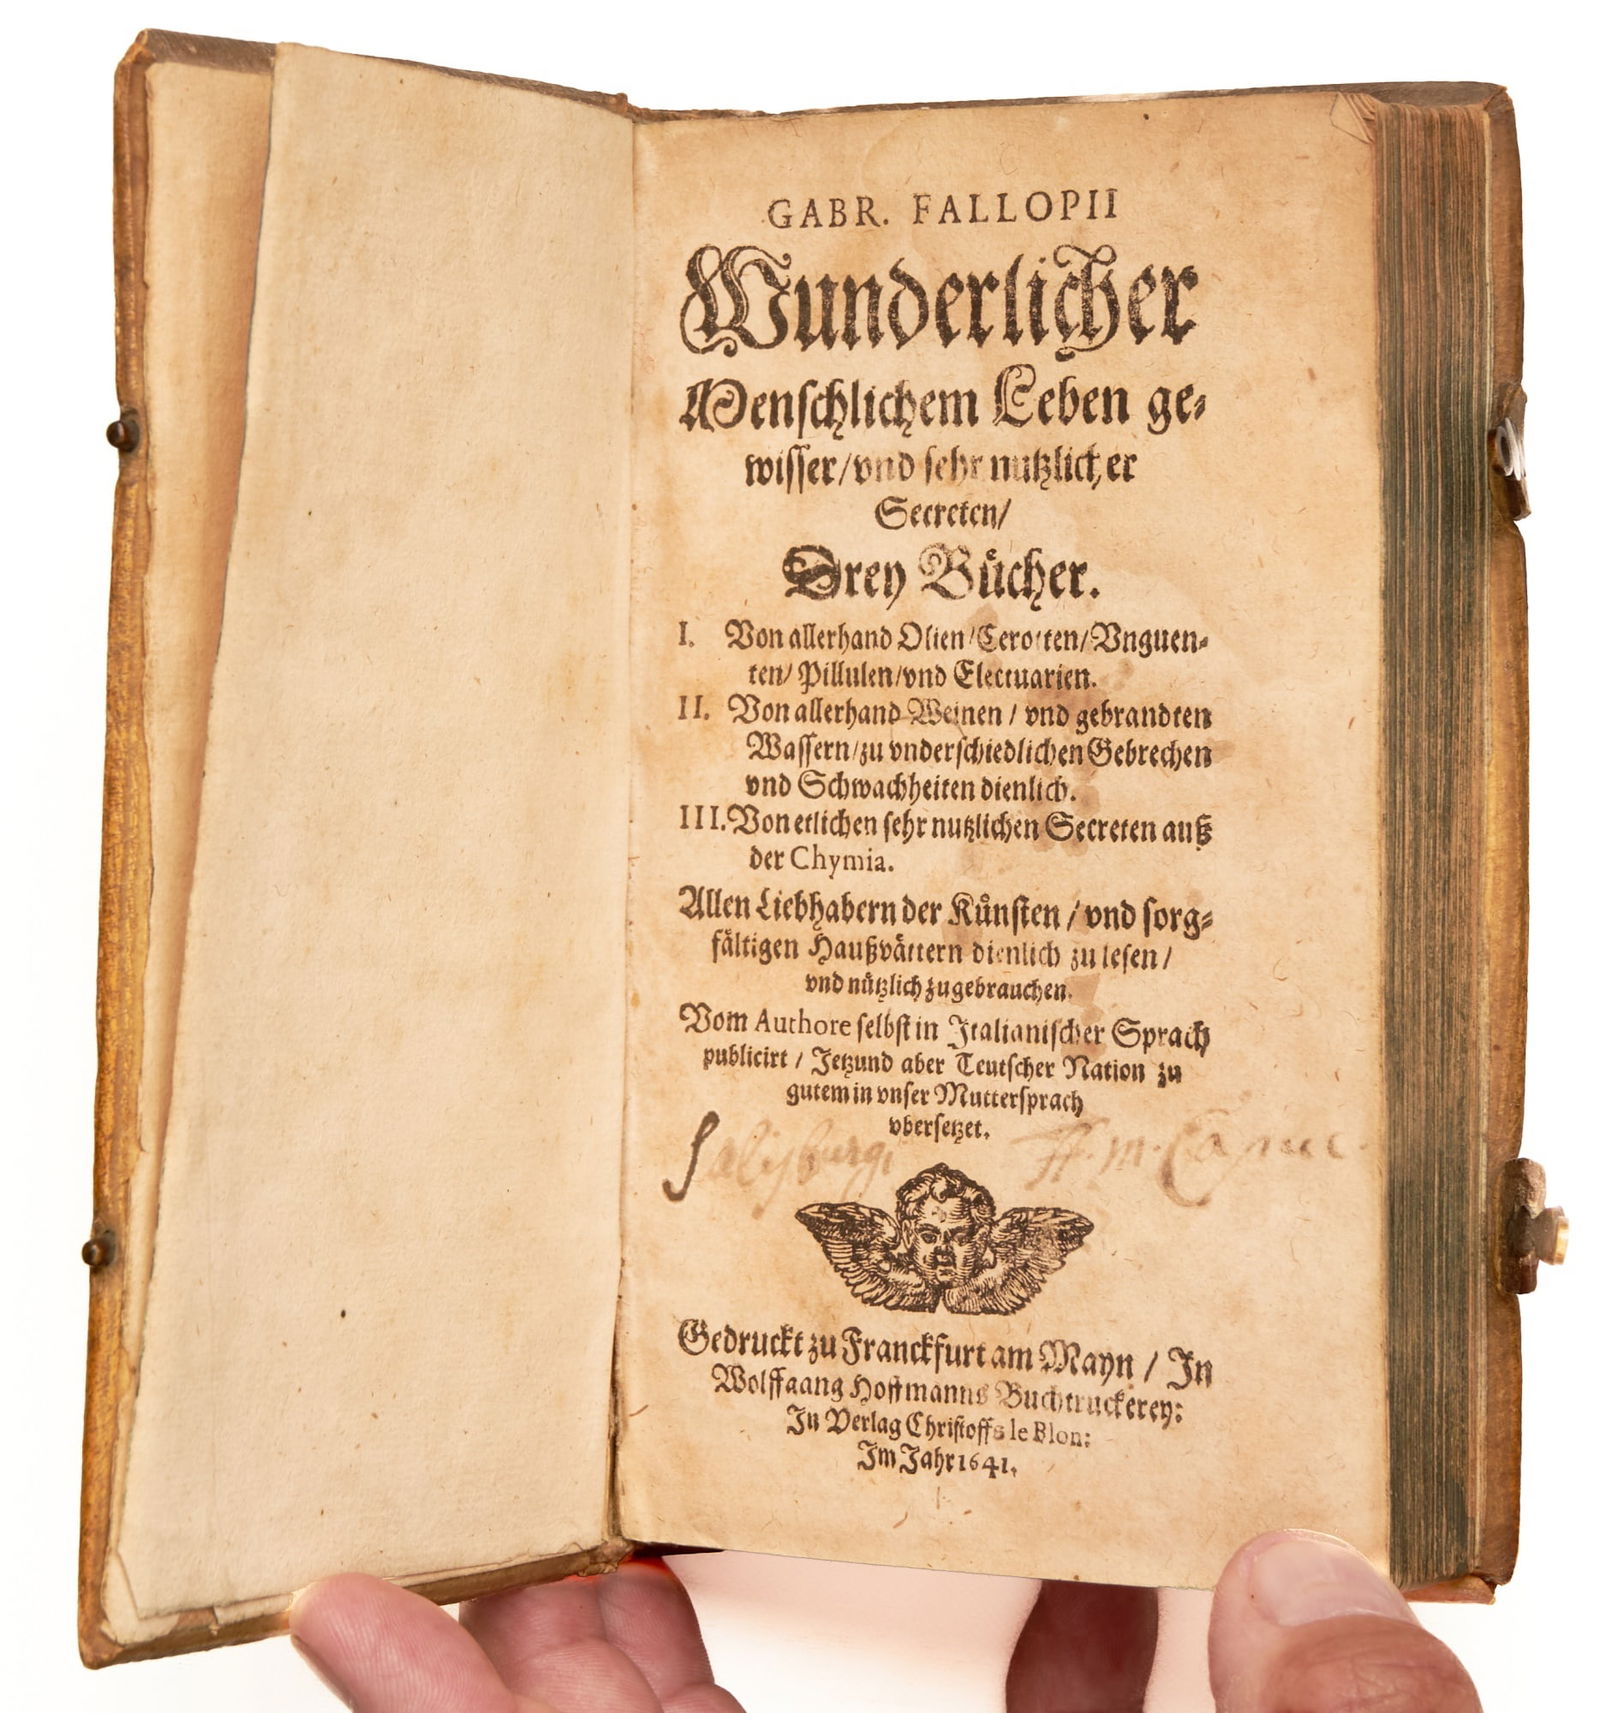 GABR. FALLOPII
Wunderlicher
Menschlichem Leben ge-
wisser/vnd sehr nutzlicher
Secreten/
Drey Bücher.
I. Von allerhand Olien/Cerotten/Vnguen-
ten/Pillulen/vnd Electuarien.
II. Von allerhand Weinen / vnd gebrandten
Wassern/zu vnderschiedlichen Gebrechen
vnd Schwachheiten dienlich.
III. Von etlichen sehr nutzlichen Secreten auß
der Chymia.
Allen Liebhabern der Künsten / vnd sorg-
fältigen Haußvättern dienlich zu lesen /
vnd nützlich zugebrauchen.
Vom Authore selbst in Italianischer Sprach
publicirt / Jetzund aber Teutscher Nation zu
gutem in vnser Muttersprach
vbersetzet.
Gedruckt zu Franckfurt am Mayn / In
Wolffgang Hoffmanns Buchtruckerey:
In Verlag Christoffs le Blon:
Im Jahr 1641.